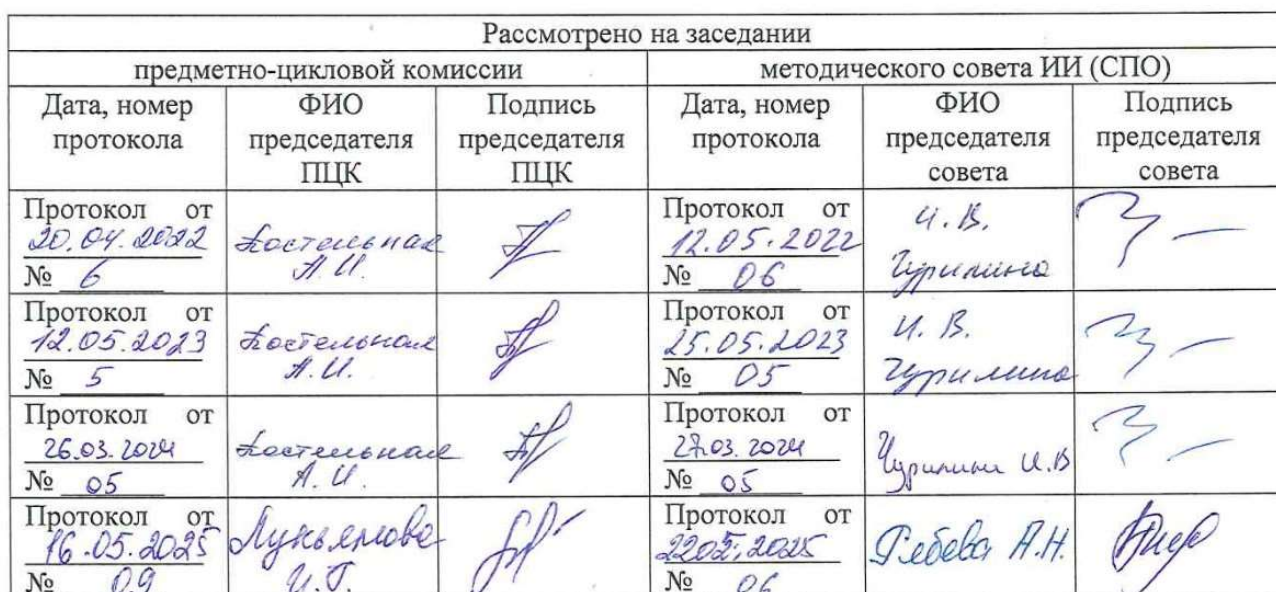 Рассмотрено на заседании
предметно-цикловой комиссии
методического совета ИИ (СПО)
Дата, номер протокола
ФИО председателя ПЦК
Подпись председателя ПЦК
Дата, номер протокола
ФИО председателя совета
Подпись председателя совета
Протокол от
20.04.2022
№ 6
Костельная
А.И.
Протокол от
12.05.2022
№ 06
И.В.
Чурилина
Протокол от
12.05.2023
№ 5
Костельная
А.И.
Протокол от
25.05.2023
№ 05
И.В.
Чурилина
Протокол от
26.03.2024
№ 05
Костельная
А.И.
Протокол от
27.03.2024
№ 05
Чурилина И.В
Протокол от
16.05.2025
№ 09
Лукьянова
И.Г.
Протокол от
22.05.2025
№ 06
А.Н.